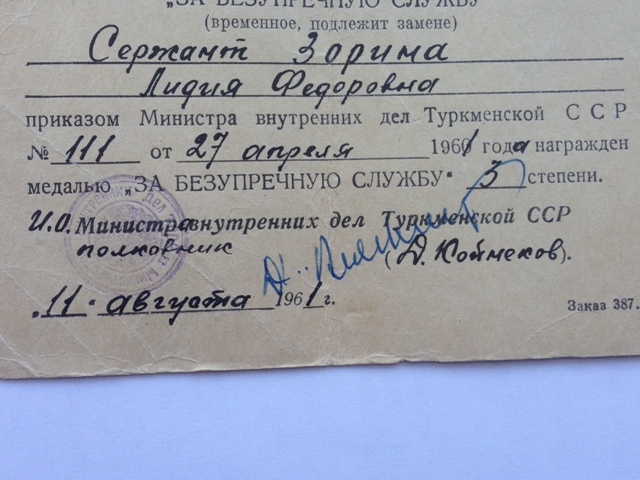 „ЗА БЕЗУПРЕЧНУЮ СЛУЖБУ“
(временное, подлежит замене)
Сержант Зорина
Лидия Федоровна
приказом Министра внутренних дел Туркменской ССР
№ 111 от 27 апреля 1961 года награжден
медалью „ЗА БЕЗУПРЕЧНУЮ СЛУЖБУ“ 3 степени.
И.О. Министра внутренних дел Туркменской ССР
полковник (Д. Коймеков).
„11“ августа 1961 г.
Заказ 387.